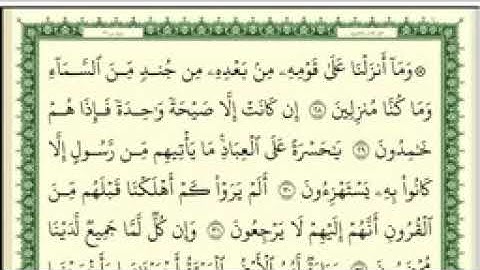 ۞ وَمَآ أَنزَلْنَا عَلَىٰ قَوْمِهِۦ مِنۢ بَعْدِهِۦ مِن جُندٍ مِّنَ ٱلسَّمَآءِ
وَمَا كُنَّا مُنزِلِينَ ٢٨ إِن كَانَتْ إِلَّا صَيْحَةً وَٰحِدَةً فَإِذَا هُمْ
خَٰمِدُونَ ٢٩ يَٰحَسْرَةً عَلَى ٱلْعِبَادِ ۚ مَا يَأْتِيهِم مِّن رَّسُولٍ إِلَّا
كَانُوا۟ بِهِۦ يَسْتَهْزِءُونَ ٣٠ أَلَمْ يَرَوْا۟ كَمْ أَهْلَكْنَا قَبْلَهُم مِّنَ
ٱلْقُرُونِ أَنَّهُمْ إِلَيْهِمْ لَا يَرْجِعُونَ ٣١ وَإِن كُلٌّ لَّمَّا جَمِيعٌ لَّدَيْنَا